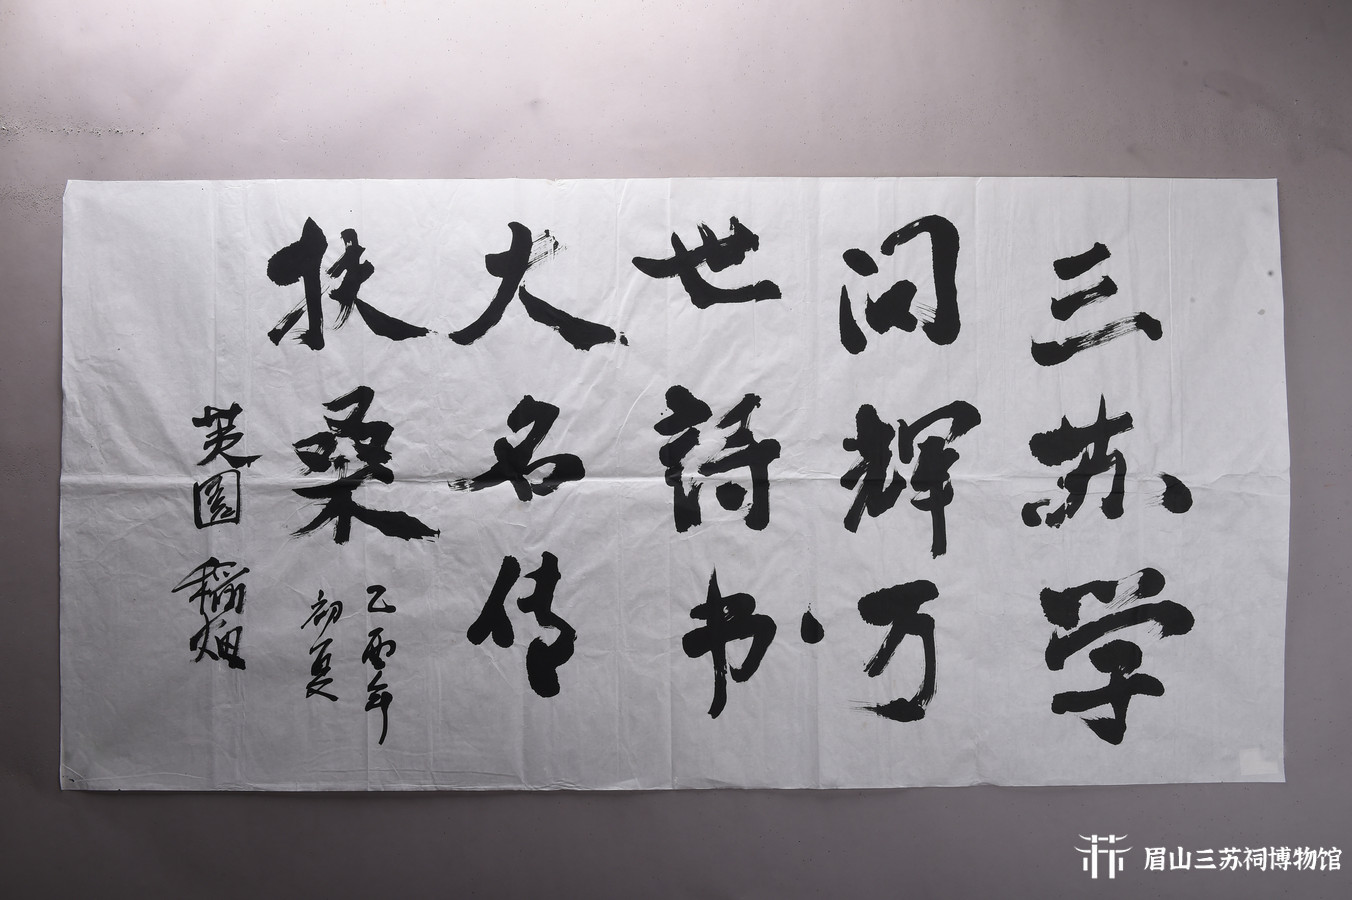 三苏学
问辉万
世詩书
大名传
扶桑
乙酉年
初夏
芙園 稻畑
眉山三苏祠博物馆